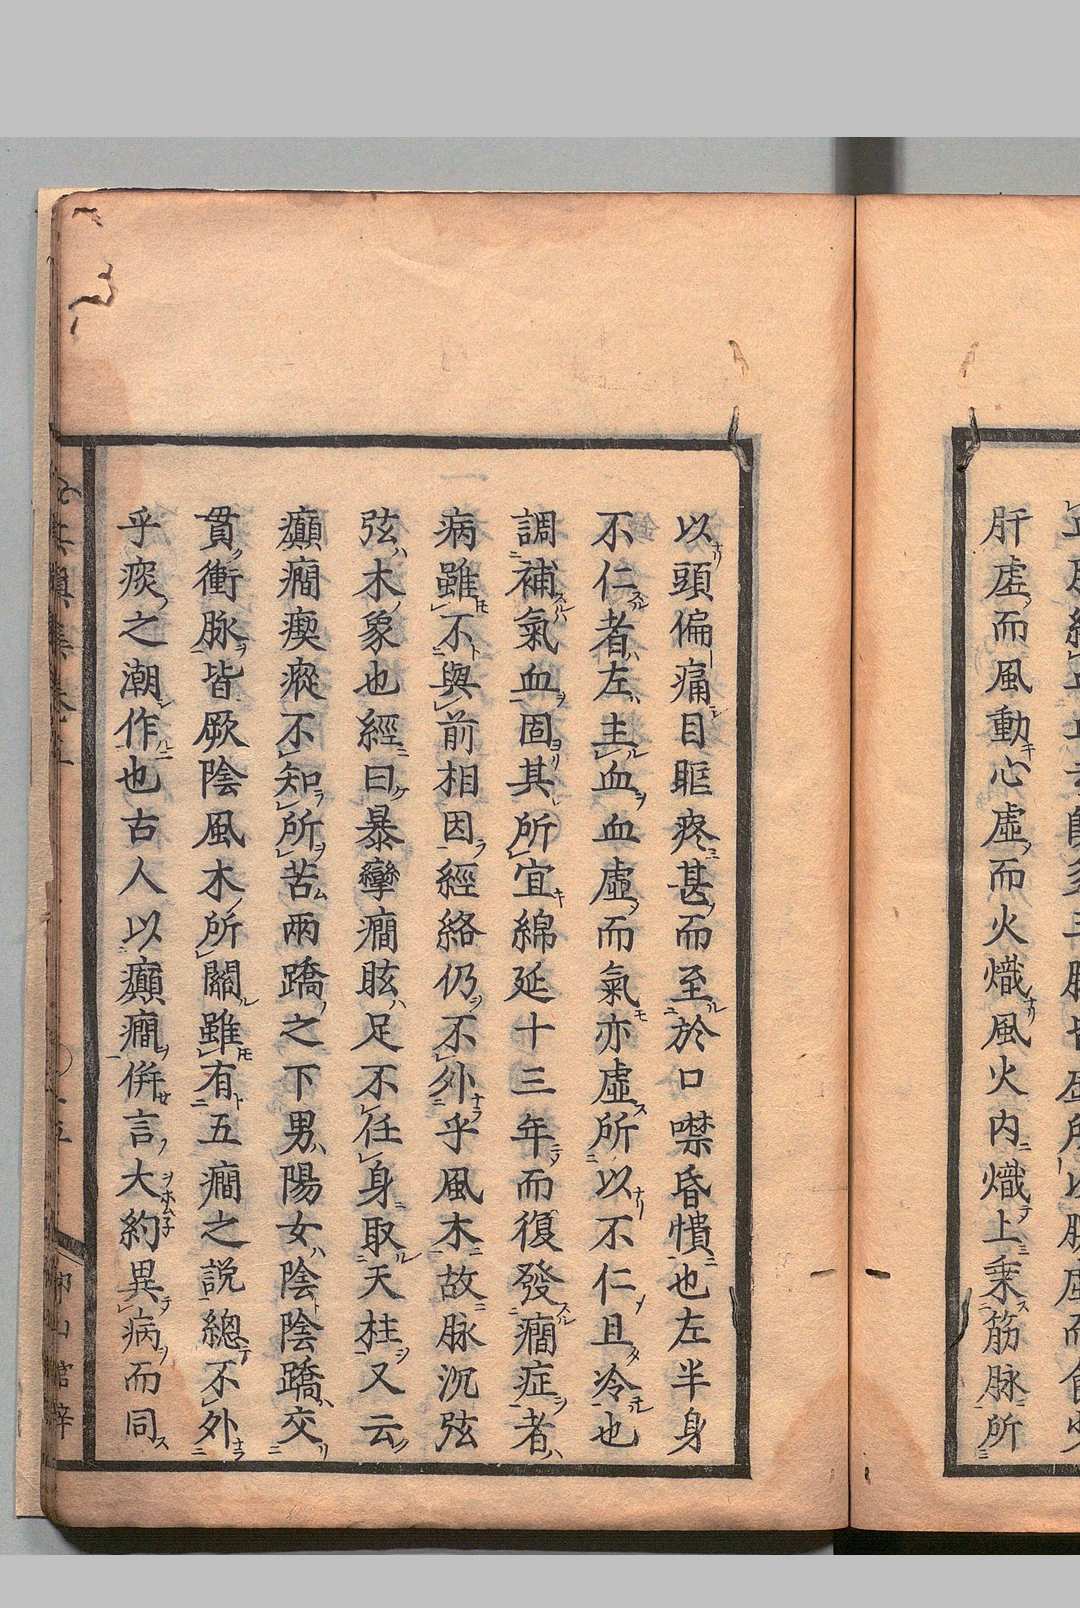 肝虛而風動心虛而火熾風火内熾上乗筋脉所
以頭偏痛目眶疼甚而至於口噤昏憒也左半身
不仁者左主血血虛而氣亦虛所以不仁且冷也
調補氣血固其所宜綿延十三年而復發癎症者
病雖不與前相因經絡仍不外乎風木故脉沉弦
弦木象也經曰暴攣癎眩足不任身取天柱又云
癲癎瘈瘲不知所苦兩蹻之下男陽女陰陰蹻交
貫衝脉皆厥陰風木所關雖有五癎之說總不外
乎痰之潮作也古人以癲癎併言大約異病而同